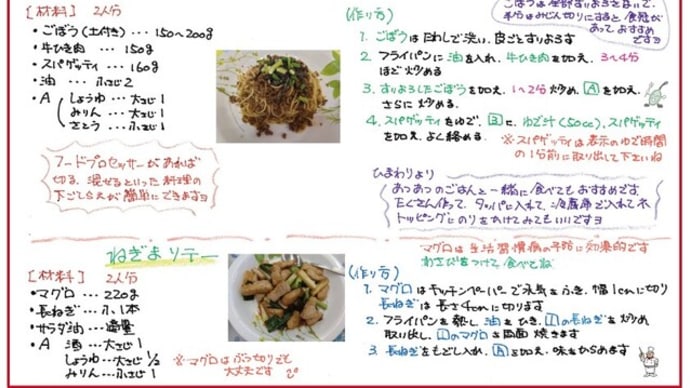 [材料] 2人分
・ごぼう(土付き)…150〜200g
・牛ひき肉…150g
・スパゲッティ…160g
・油…小さじ2
・A しょうゆ…大さじ1
みりん…大さじ1
さとう…小さじ1
フードプロセッサーがあれば
切る、混ぜるといった料理の
下ごしらえが簡単にできますヨ
(作り方)
ごぼうは全部すりおろさないで、
半分はみじん切りにすると食感が
あっておすすめ
ですヨ
1. ごぼうはたわしで洗い、皮ごとすりおろす
2 フライパンに油を入れ、牛ひき肉を加え、3〜4分
ほど炒める
3. すりおろしたごぼうを加え、1〜2分炒め、Aを加え、
さらに炒める。
4. スパゲッティをゆで、3に、ゆで汁(50cc)、スパゲッティ
を加え、よく絡める。
※スパゲッティは表示のゆで時間
の1分前に取り出して下さいね
ひまわりより
あつあつのごはんと一緒に食べてもおすすめです
たくさん作って、タッパに入れて、冷蔵庫で入れてネ
トッピングにのりをかけてみてもいいですヨ
ねぎまソテー
[材料] 2人分
・マグロ…220g
・長ねぎ…小1本
・サラダ油…適量
・A 酒…大さじ1
しょうゆ…大さじ1/2
みりん…小さじ1
※マグロはぶつ切りでも
大丈夫です
マグロは生活習慣病の予防に効果的です
わさびをつけて食べてね
(作り方)
1. マグロはキッチンペーパーで水気をふき、幅1cmに切り
長ねぎは長さ4cmに切ります
2. フライパンを熱し油をひき、1の長ねぎを炒め
取り出し、1のマグロを両面焼きます
3. 長ねぎをもどし入れ、Aを加え、味をからめます